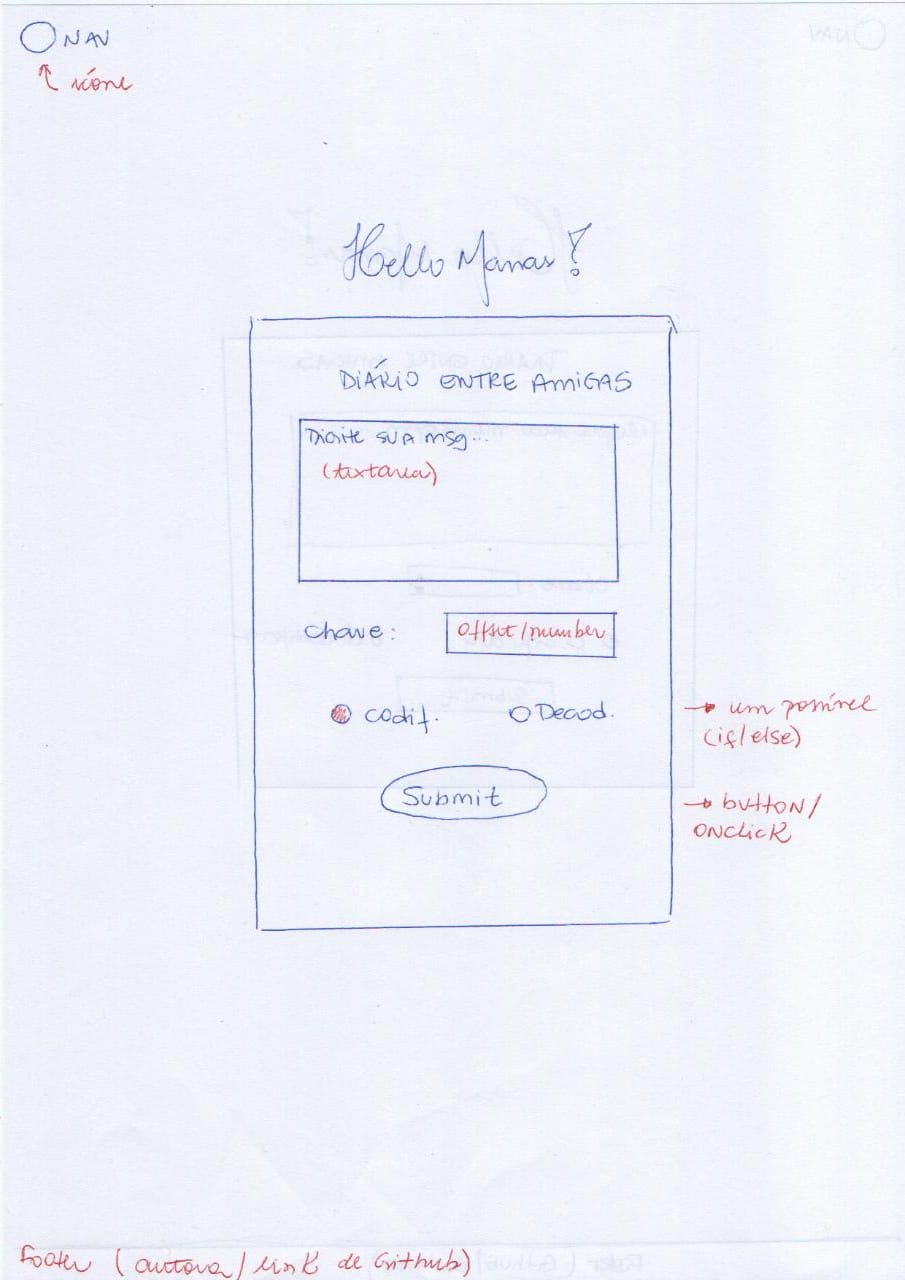 NAV
ícone
Hello Manas!
DIÁRIO ENTRE AMIGAS
Digite sua msg...
(textarea)
chave:
offset/number
codif.
Decod.
→ um possível
(if/else)
Submit
→ button/
onclick
Footer (autora/link de Github)